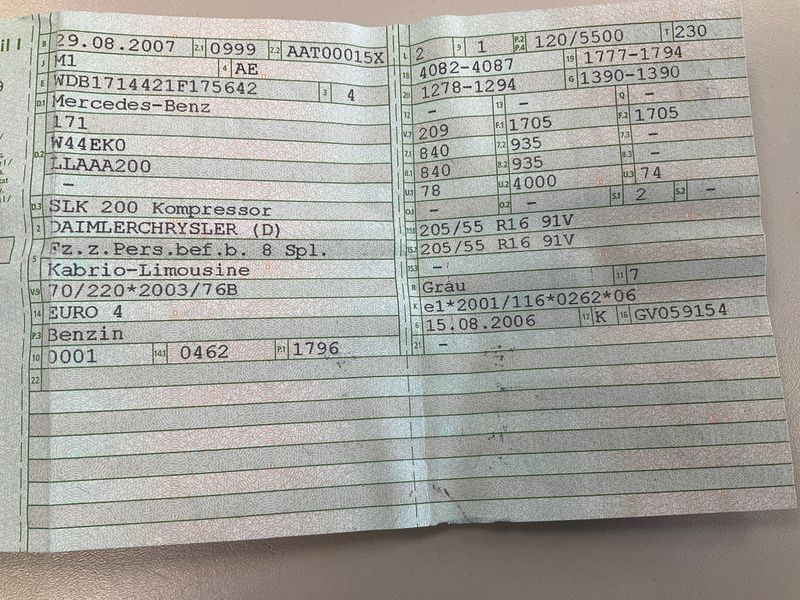 il I
B 29.08.2007 2.1 0999 2.2 AAT00015X
J M1 4 AE
E WDB1714421F175642 3 4
D.1 Mercedes-Benz
171
D.2 W44EK0
LLAAA200
–
D.3 SLK 200 Kompressor
2 DAIMLERCHRYSLER (D)
5 Fz.z.Pers.bef.b. 8 Spl.
Kabrio-Limousine
V.9 70/220*2003/76B
14 EURO 4
P.3 Benzin
10 0001 14.1 0462 P.1 1796
22
L 2 9 1 P.2 P.4 120/5500 T 230
18 4082-4087 19 1777-1794
20 1278-1294 G 1390-1390
12 – 13 – Q –
V.7 209 F.1 1705 F.2 1705
7.1 840 7.2 935 7.3 –
8.1 840 8.2 935 8.3 –
U.1 78 U.2 4000 U.3 74
O.1 – O.2 – S.1 2 S.2 –
15.1 205/55 R16 91V
15.2 205/55 R16 91V
15.3 –
R Grau 11 7
K e1*2001/116*0262*06
6 15.08.2006 17 K 16 GV059154
21 –